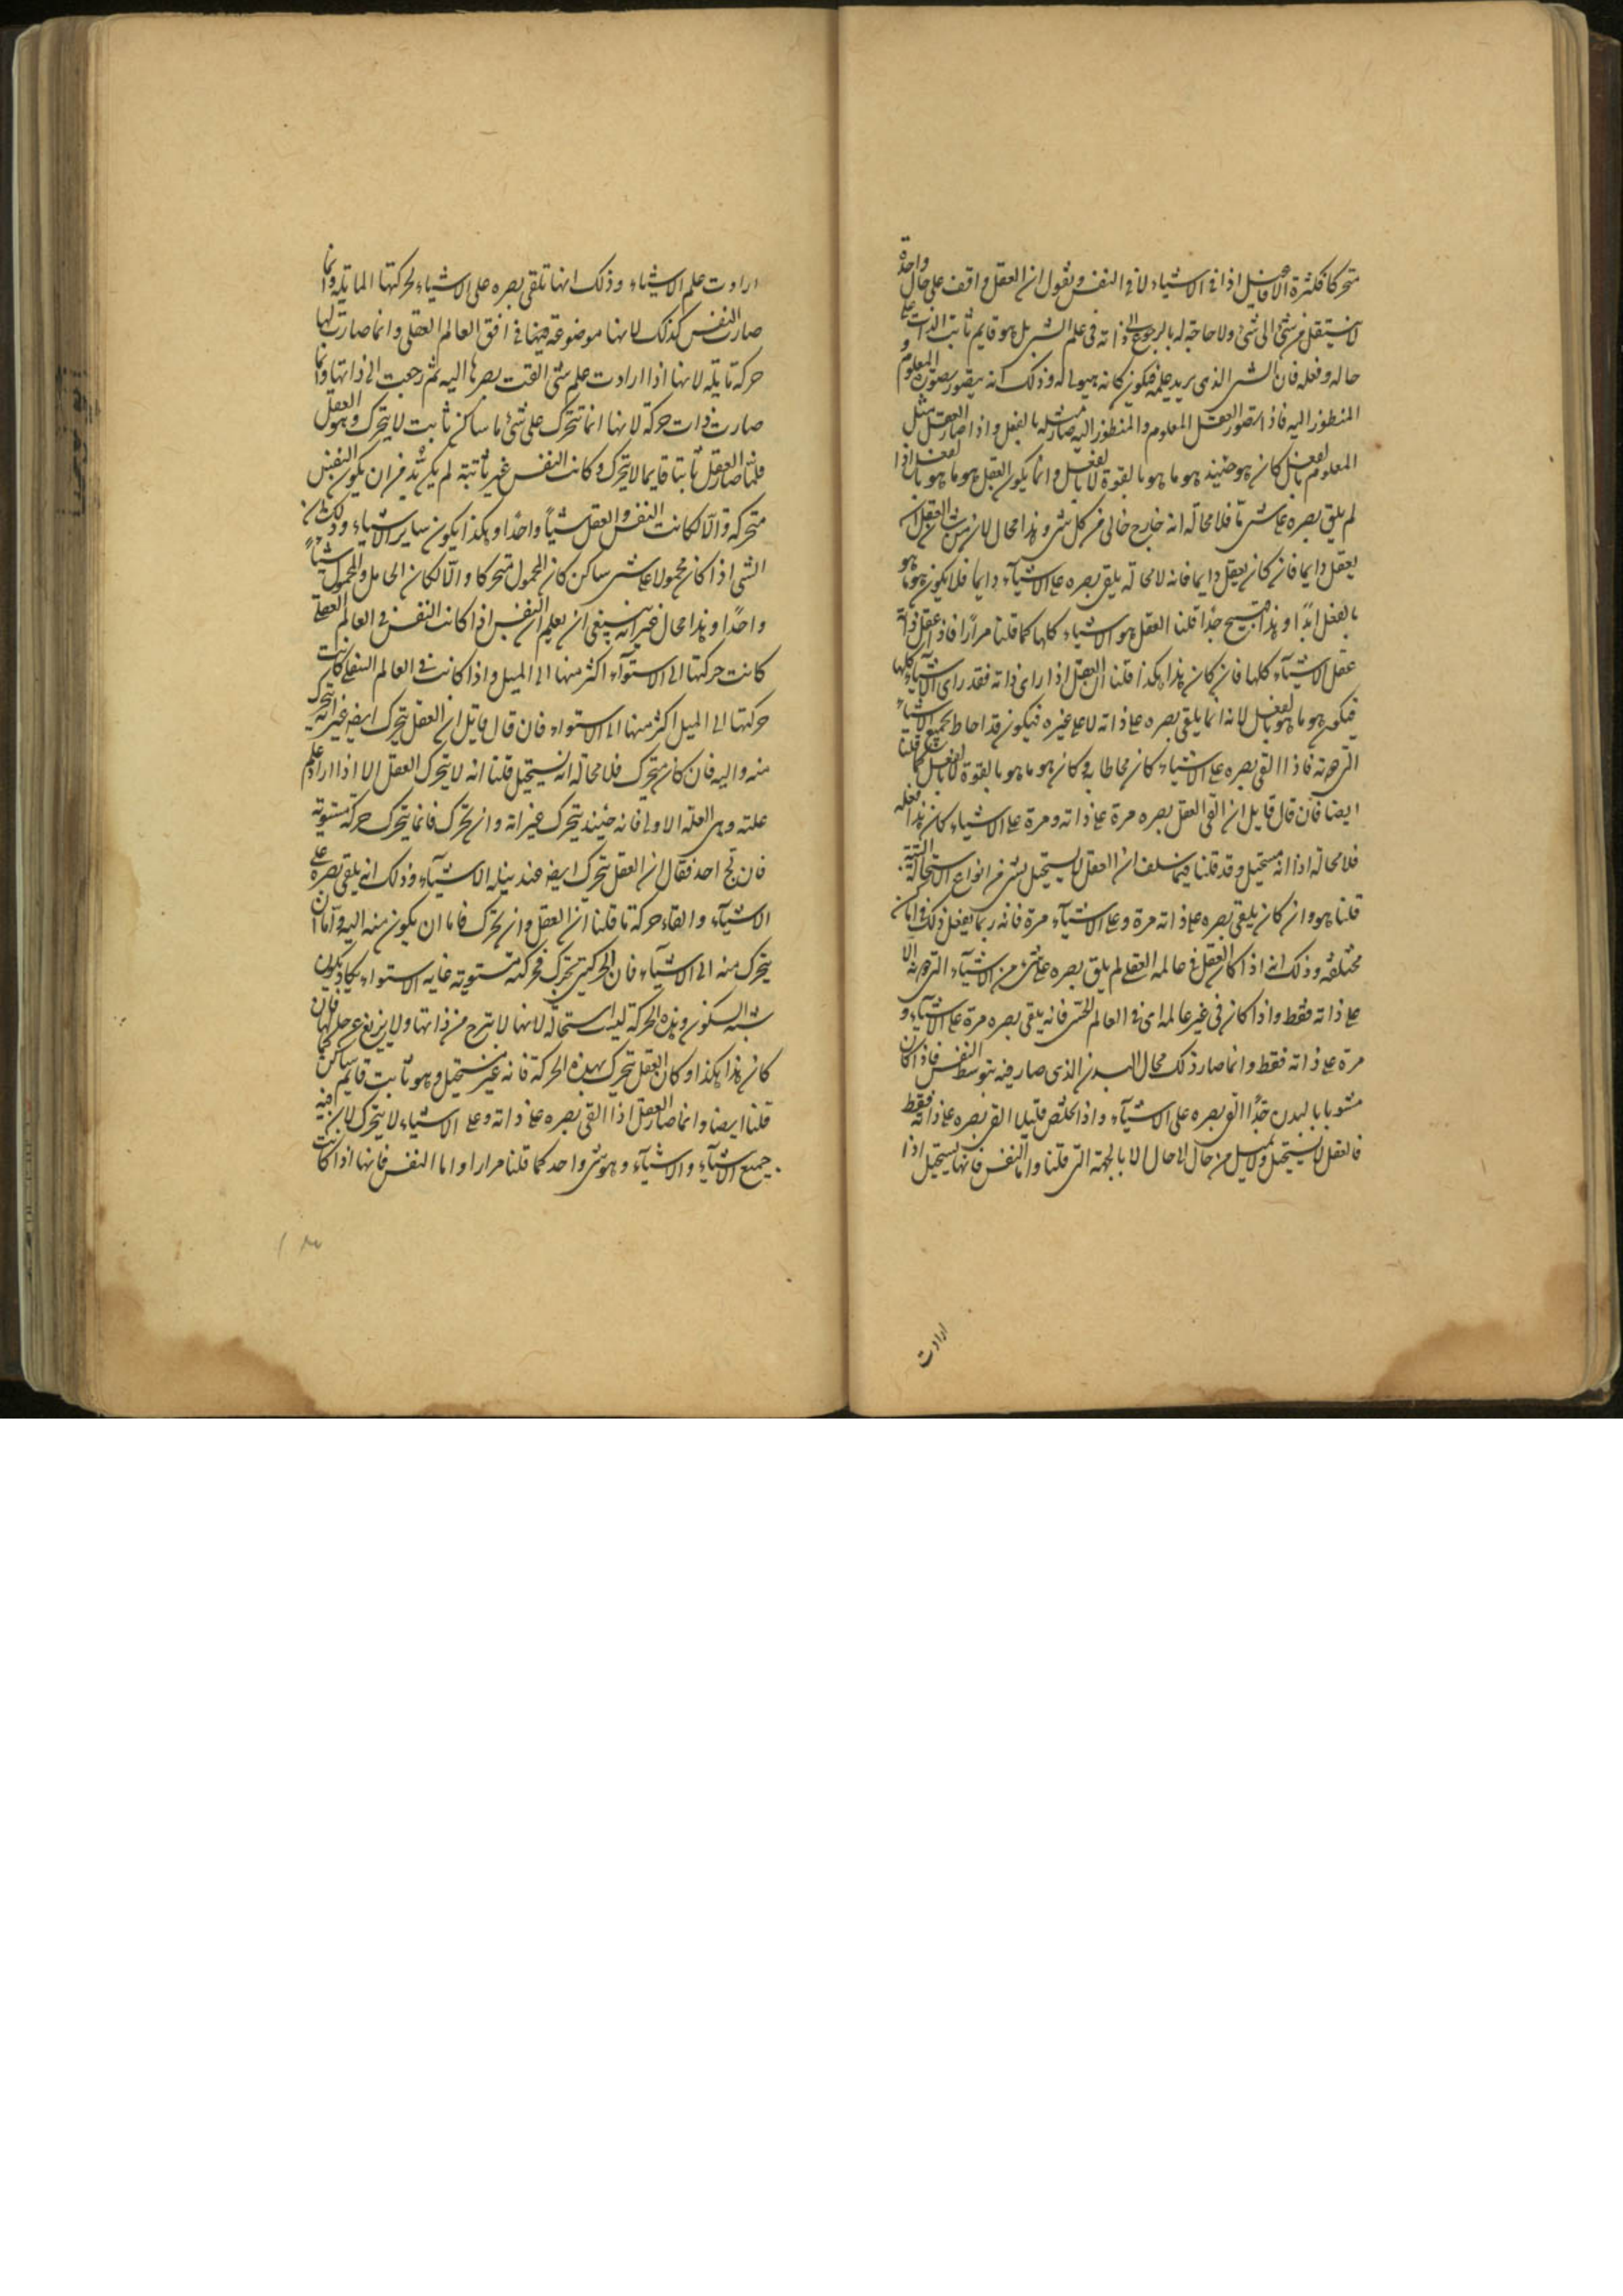 متحركا فكثرة الافاضيل اذا في الاشياء لا في النفس ونقول ان العقل واقف على حال واحدة
لا ينتقل من شئ الى شئ ولا حاجة له بالرجوع الى ذاته فى علم الشئ بل هو قايم ثابت الذات على
حاله وفعله فان الشئ الذى يريد علمه فيكون كانه هيولى له وذلك انه يتصور بصورة المعلوم و
المنظور اليه فاذا تصور العقل المعلوم والمنظور اليه صار مثله بالفعل واذا صار العقل مثل
المعلوم بالفعل كان هو حينئذ هو ما هو بالقوة لا بالفعل وانما يكون العقل هو ما هو بالفعل اذا
لم يلق بصره على شئ ما فلا محالة انه خارج خالى من كل شئ وهذا محال لان من شان العقل ان
يعقل دايما فان كان يعقل دايما فانه لا محالة يلقى بصره على الاشياء دايما فلا يكون هو ما هو
بالفعل ابدًا وهذا قبيح جدًا قلنا العقل هو الاشياء كلها كما قلنا مرارًا فاذا عقل ذاته
عقل الاشياء كلها فان كان هذا هكذا قلنا ان العقل اذا راى ذاته فقد راى الاشياء كلها
فيكون هو ما هو بالفعل لانه انما يلقى بصره على ذاته لا على غيره فيكون قد احاط بجميع الاشياء
التى دونه فاذا القى بصره على الاشياء كان محاطا بها وكان هو ما هو بالقوة لا بالفعل كما قلنا
ايضا فان قال قايل ان القى العقل بصره مرة على ذاته ومرة على الاشياء كان هذا فعله
فلا محالة اذا انه مستحيل وقد قلنا فيما سلف ان العقل لا يستحيل بشئ من انواع الاستحالة البتة
قلنا هو وان كان يلقى بصره على ذاته مرة وعلى الاشياء مرة فانه ربما يفعل ذلك فى اماكن
مختلفة وذلك انه اذا كان العقل فى عالمه العقلى لم يلق بصره على شئ من الاشياء التى دونه الا
على ذاته فقط واذا كان فى غير عالمه اى فى العالم الحسى فانه يلقى بصره مرة على الاشياء و
مرة على ذاته فقط وانما صار ذلك بحال البدن الذى صار فيه بتوسط النفس فاذا كان
مشوبا بالبدن جدًا القى بصره على الاشياء واذا تخلص قليلا القى بصره على ذاته فقط
فالعقل لا يستحيل ولا يميل من حال الى حال الا بالجهة التى قلنا واما النفس فانها تستحيل اذا
ارادت
ارادت علم الاشياء وذلك انها تلقى بصره على الاشياء لحركتها المايلة وانما
صارت النفس كذلك لانها موضوعة فيها فى افق العالم العقلى وانما صارت لها
حركة مايلة لانها اذا ارادت علم شئ القت بصرها اليه ثم رجعت الى ذاتها وانما
صارت ذات حركة لانها انما تتحرك على شئ ما ساكن ثابت لا يتحرك وهو العقل
فلما صار العقل ثابتا قايما لا يتحرك وكانت النفس غير ثابتة لم يكن بُد من ان يكون النفس
متحركة والّا لكانت النفس والعقل شيئًا واحدًا وهكذا يكون ساير الاشياء وذلك ان
الشى اذا كان محمولا على شئ ساكن كان المحمول متحركا والّا لكان الحامل والمحمول شيئًا
واحدًا وهذا محال غير انه ينبغى ان يعلم ان النفس اذا كانت النفس فى العالم العقلى
كانت حركتها الى الاستوآء اكثر منها الى الميل واذا كانت فى العالم السفلى كانت
حركتها الى الميل اكثر منها الى الاستواء فان قال قايل ان العقل يتحرك ايضا غير انه يتحرك
منه واليه فان كان يتحرك فلا محالة انه يستحيل قلنا انه لا يتحرك العقل الا اذا اراد علم
علته وهى العلة الاولى فانه حينئذ يتحرك غير انه وان تحرك فانما يتحرك حركة مستوية
فان لج احد فقال ان العقل يتحرك ايضا عند نيله الاشياء وذلك انه يلقى بصره على
الاشيآء والقاء حركة ما قلنا ان العقل وان تحرك فاما ان يكون منه اليه واما ان
يتحرك منه الى الاشياء فان الحركتين تحرك فحركته مستوية غاية الاستواء يكاد يكون
شبه السكون وهذه الحركة ليست استحالة لانها لا تبرح من ذاتها ولا يزيغ عن حالها فان
كان هذا هكذا وكان العقل يتحرك بهذه الحركة فانه غير مستحيل وهو ثابت قايم ساكن كما
قلنا ايضا وانما صار العقل اذا القى بصره على ذاته وعلى الاشياء لا يتحرك لان فيه
جميع الاشياء والاشياء وهو شئ واحد كما قلنا مرارا واما النفس فانها اذا كانت